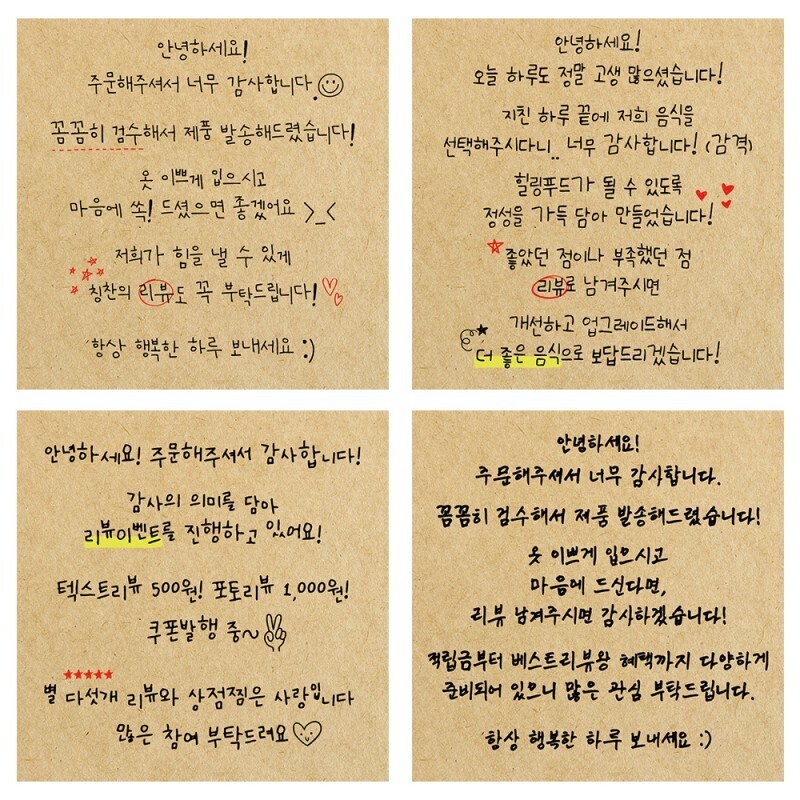 안녕하세요!
주문해주셔서 너무 감사합니다.
꼼꼼히 검수해서 제품 발송해드렸습니다!
옷 이쁘게 입으시고
마음에 쏙! 드셨으면 좋겠어요 >_<
저희가 힘을 낼 수 있게
칭찬의 리뷰도 꼭 부탁드립니다!
항상 행복한 하루 보내세요 :)
안녕하세요!
오늘 하루도 정말 고생 많으셨습니다!
지친 하루 끝에 저희 음식을
선택해주시다니.. 너무 감사합니다! (감격)
힐링푸드가 될 수 있도록
정성을 가득 담아 만들었습니다!
좋았던 점이나 부족했던 점
리뷰로 남겨주시면
개선하고 업그레이드해서
더 좋은 음식으로 보답드리겠습니다!
안녕하세요! 주문해주셔서 감사합니다!
감사의 의미를 담아
리뷰이벤트를 진행하고 있어요!
텍스트리뷰 500원! 포토리뷰 1,000원!
쿠폰발행 중~
별 다섯개 리뷰와 상점찜은 사랑입니다
많은 참여 부탁드려요
안녕하세요!
주문해주셔서 너무 감사합니다.
꼼꼼히 검수해서 제품 발송해드렸습니다!
옷 이쁘게 입으시고
마음에 드신다면,
리뷰 남겨주시면 감사하겠습니다!
적립금부터 베스트리뷰왕 혜택까지 다양하게
준비되어 있으니 많은 관심 부탁드립니다.
항상 행복한 하루 보내세요 :)